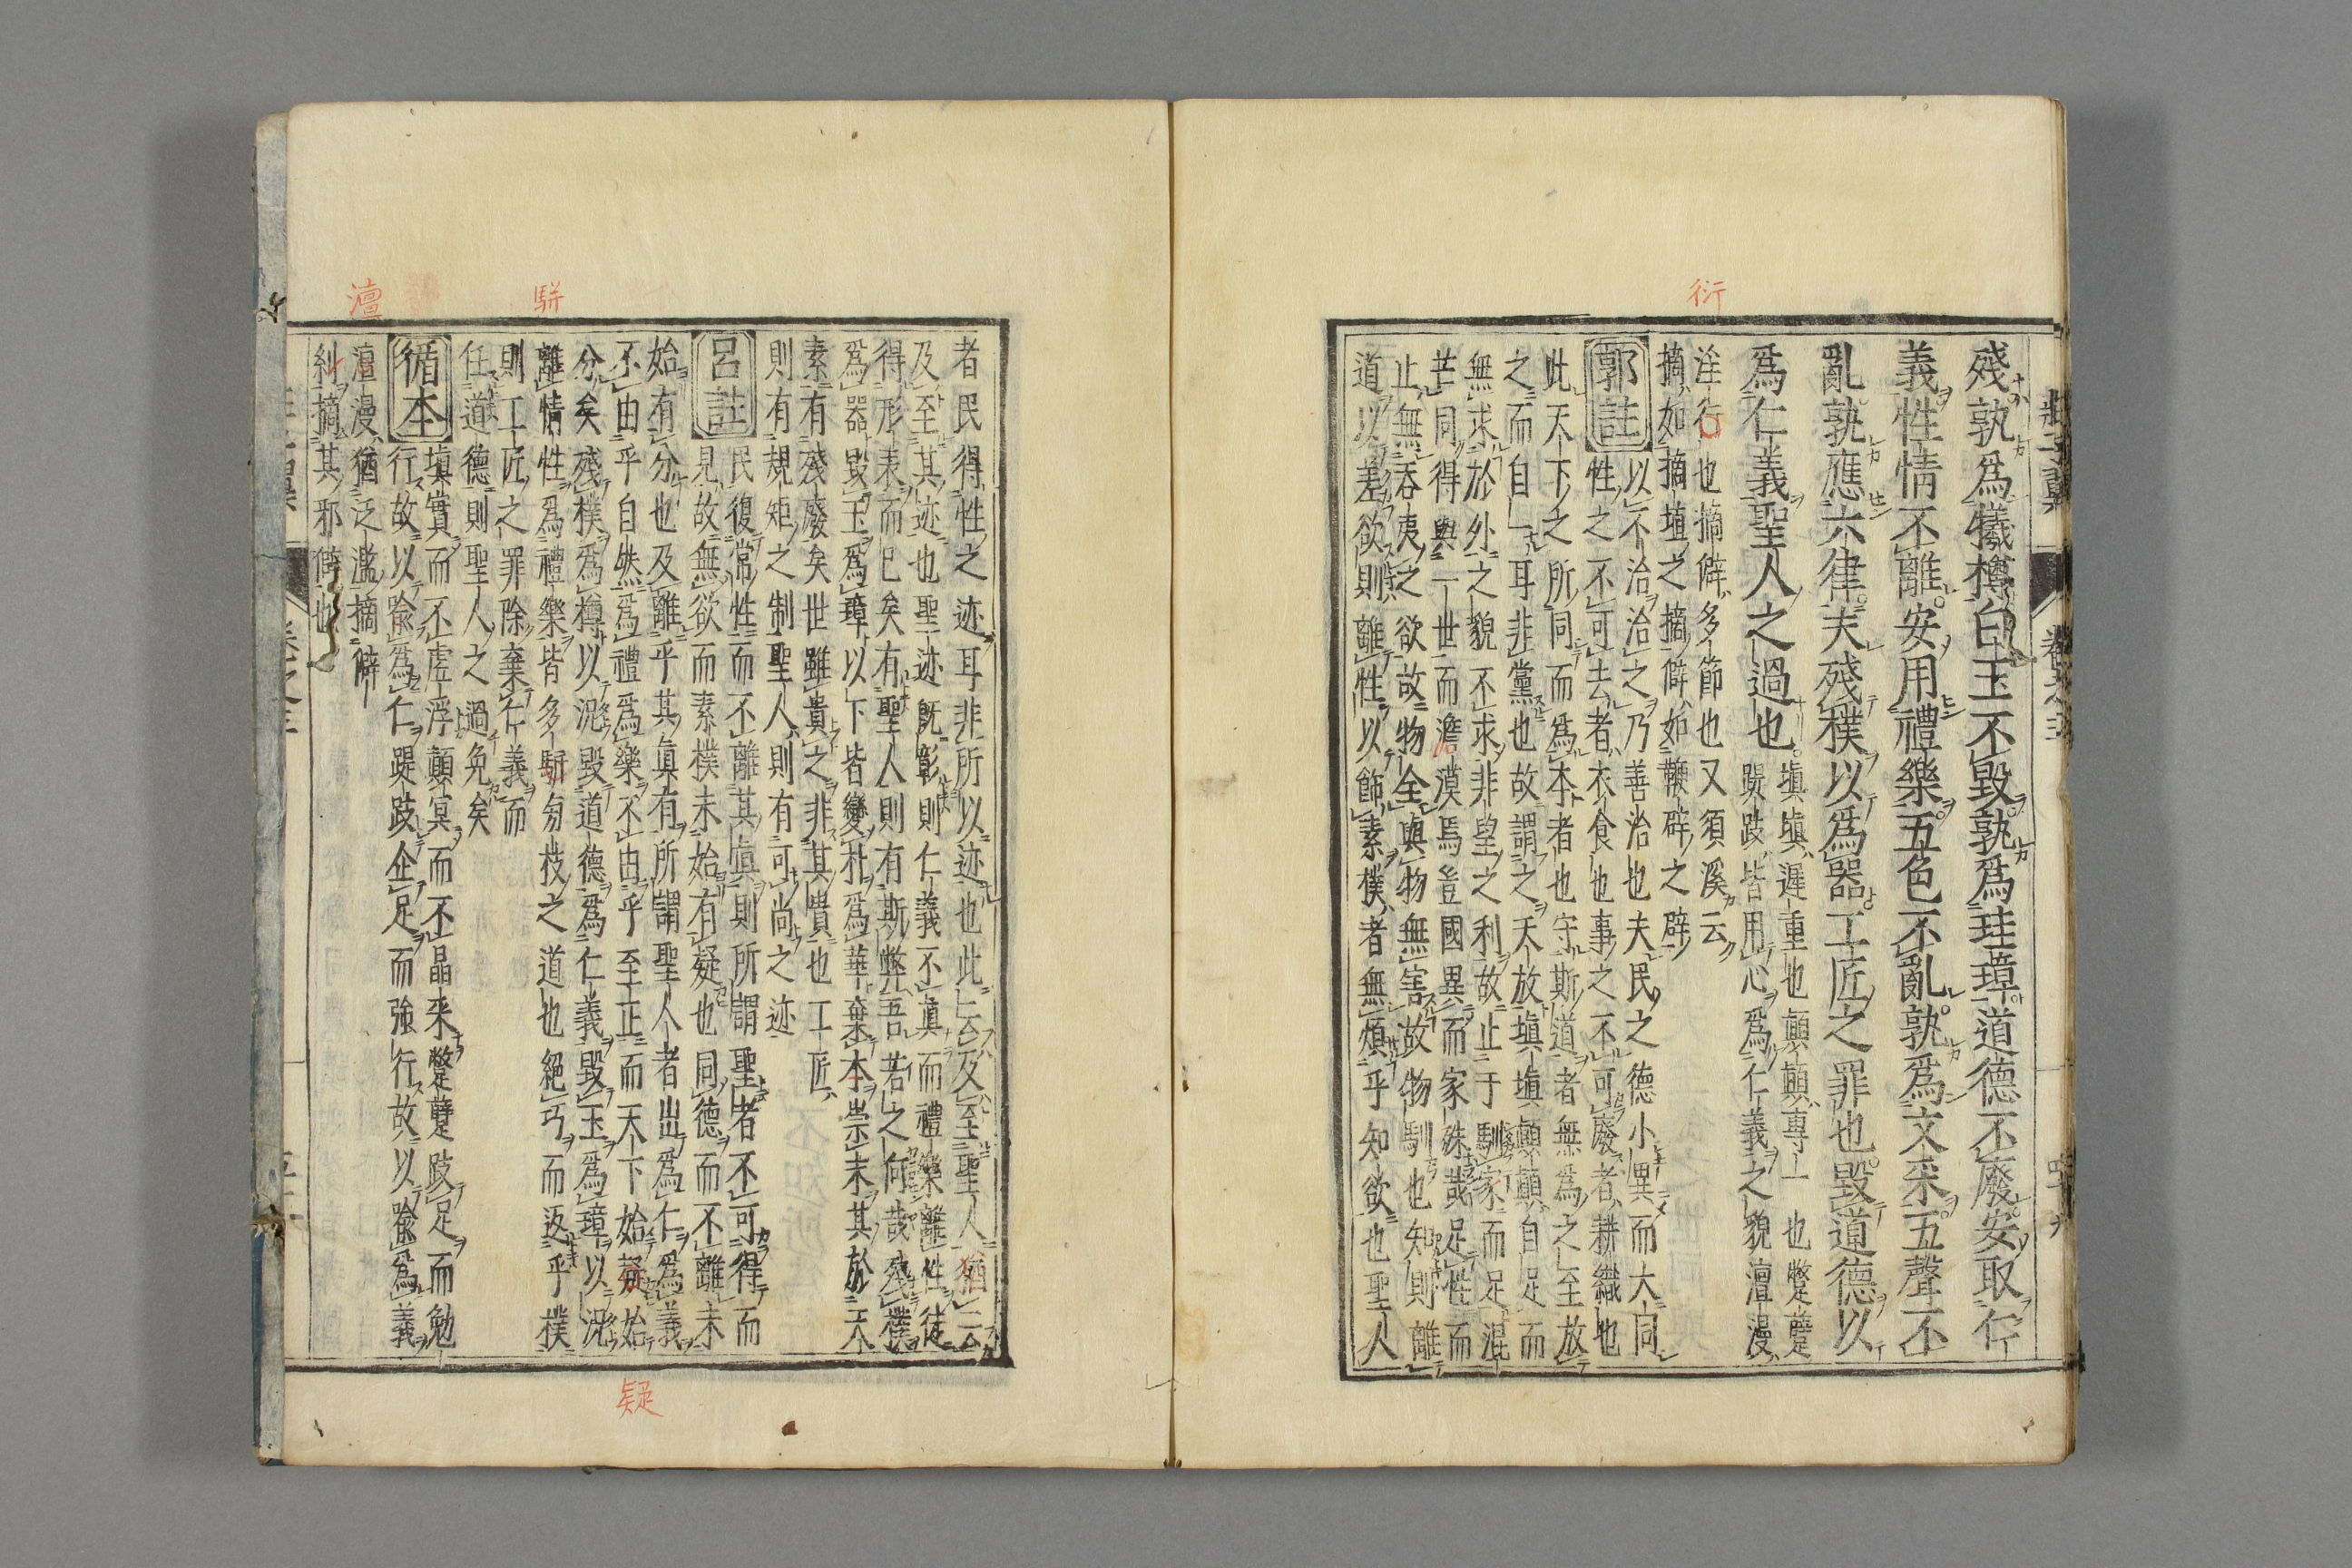 殘孰爲犧樽白玉不毀孰爲珪璋道德不廢安取仁
義性情不離安用禮樂五色不亂孰爲文采五聲不
亂孰應六律夫殘樸以爲器工匠之罪也毀道德以
爲仁義聖人之過也
塡塡遲重也顚顚專一也蹩躠
踶跂皆用心爲仁義之貌澶漫
淫行也摘僻多節也又須溪云
摘如摘埴之摘僻如鞭辟之辟
郭註
以不治治之乃善治也夫民之德小異而大同
性之不可去者衣食也事之不可廢者耕織也
此天下之所同而爲本者也守斯道者無爲之至放
之而自耳非黨也故謂之天放塡塡顚顚自足而
無求於外之貌不求非望之利故止于馴家而足混
芒同得與一世而澹漠焉豈國異而家殊哉足性而
止無吞夷之欲故物全與物無害故物馴也知則離
道以差欲則離性以飾素樸者無煩乎知欲也聖人
衍
者民得性之迹耳非所以迹也此云及至聖人猶云
及至其迹也聖迹既彰則仁義不眞而禮樂離性徒
得形表而已矣有聖人則有斯弊吾若之何哉殘樸
爲器毀玉爲璋以下皆變朴爲華棄本崇末其於天
素有殘廢矣世雖貴之非其貴也工匠
則有規矩之制聖人則有可尚之迹
呂註
民復常性而不離其眞則所謂聖者不可得而
見故無欲而素樸未始有疑也同德而不離未
始有分也及離乎其眞有所謂聖人者出爲仁爲義
不由乎自然爲禮爲樂不由乎至正而天下始疑始
分矣殘樸爲樽以況毀道德爲仁義毀玉爲璋以況
離情性爲禮樂皆多駢旁枝之道也絕巧而返乎樸
則工匠之罪除棄仁義而
任道德則聖人之過免矣
循本
塡實而不虛浮顚冥而不晶采蹩躠跂足而勉
行故以喩爲仁踶跂企足而強行故以喩爲義
澶漫猶泛濫摘僻
糾摘其邪僻也
駢
澶
疑